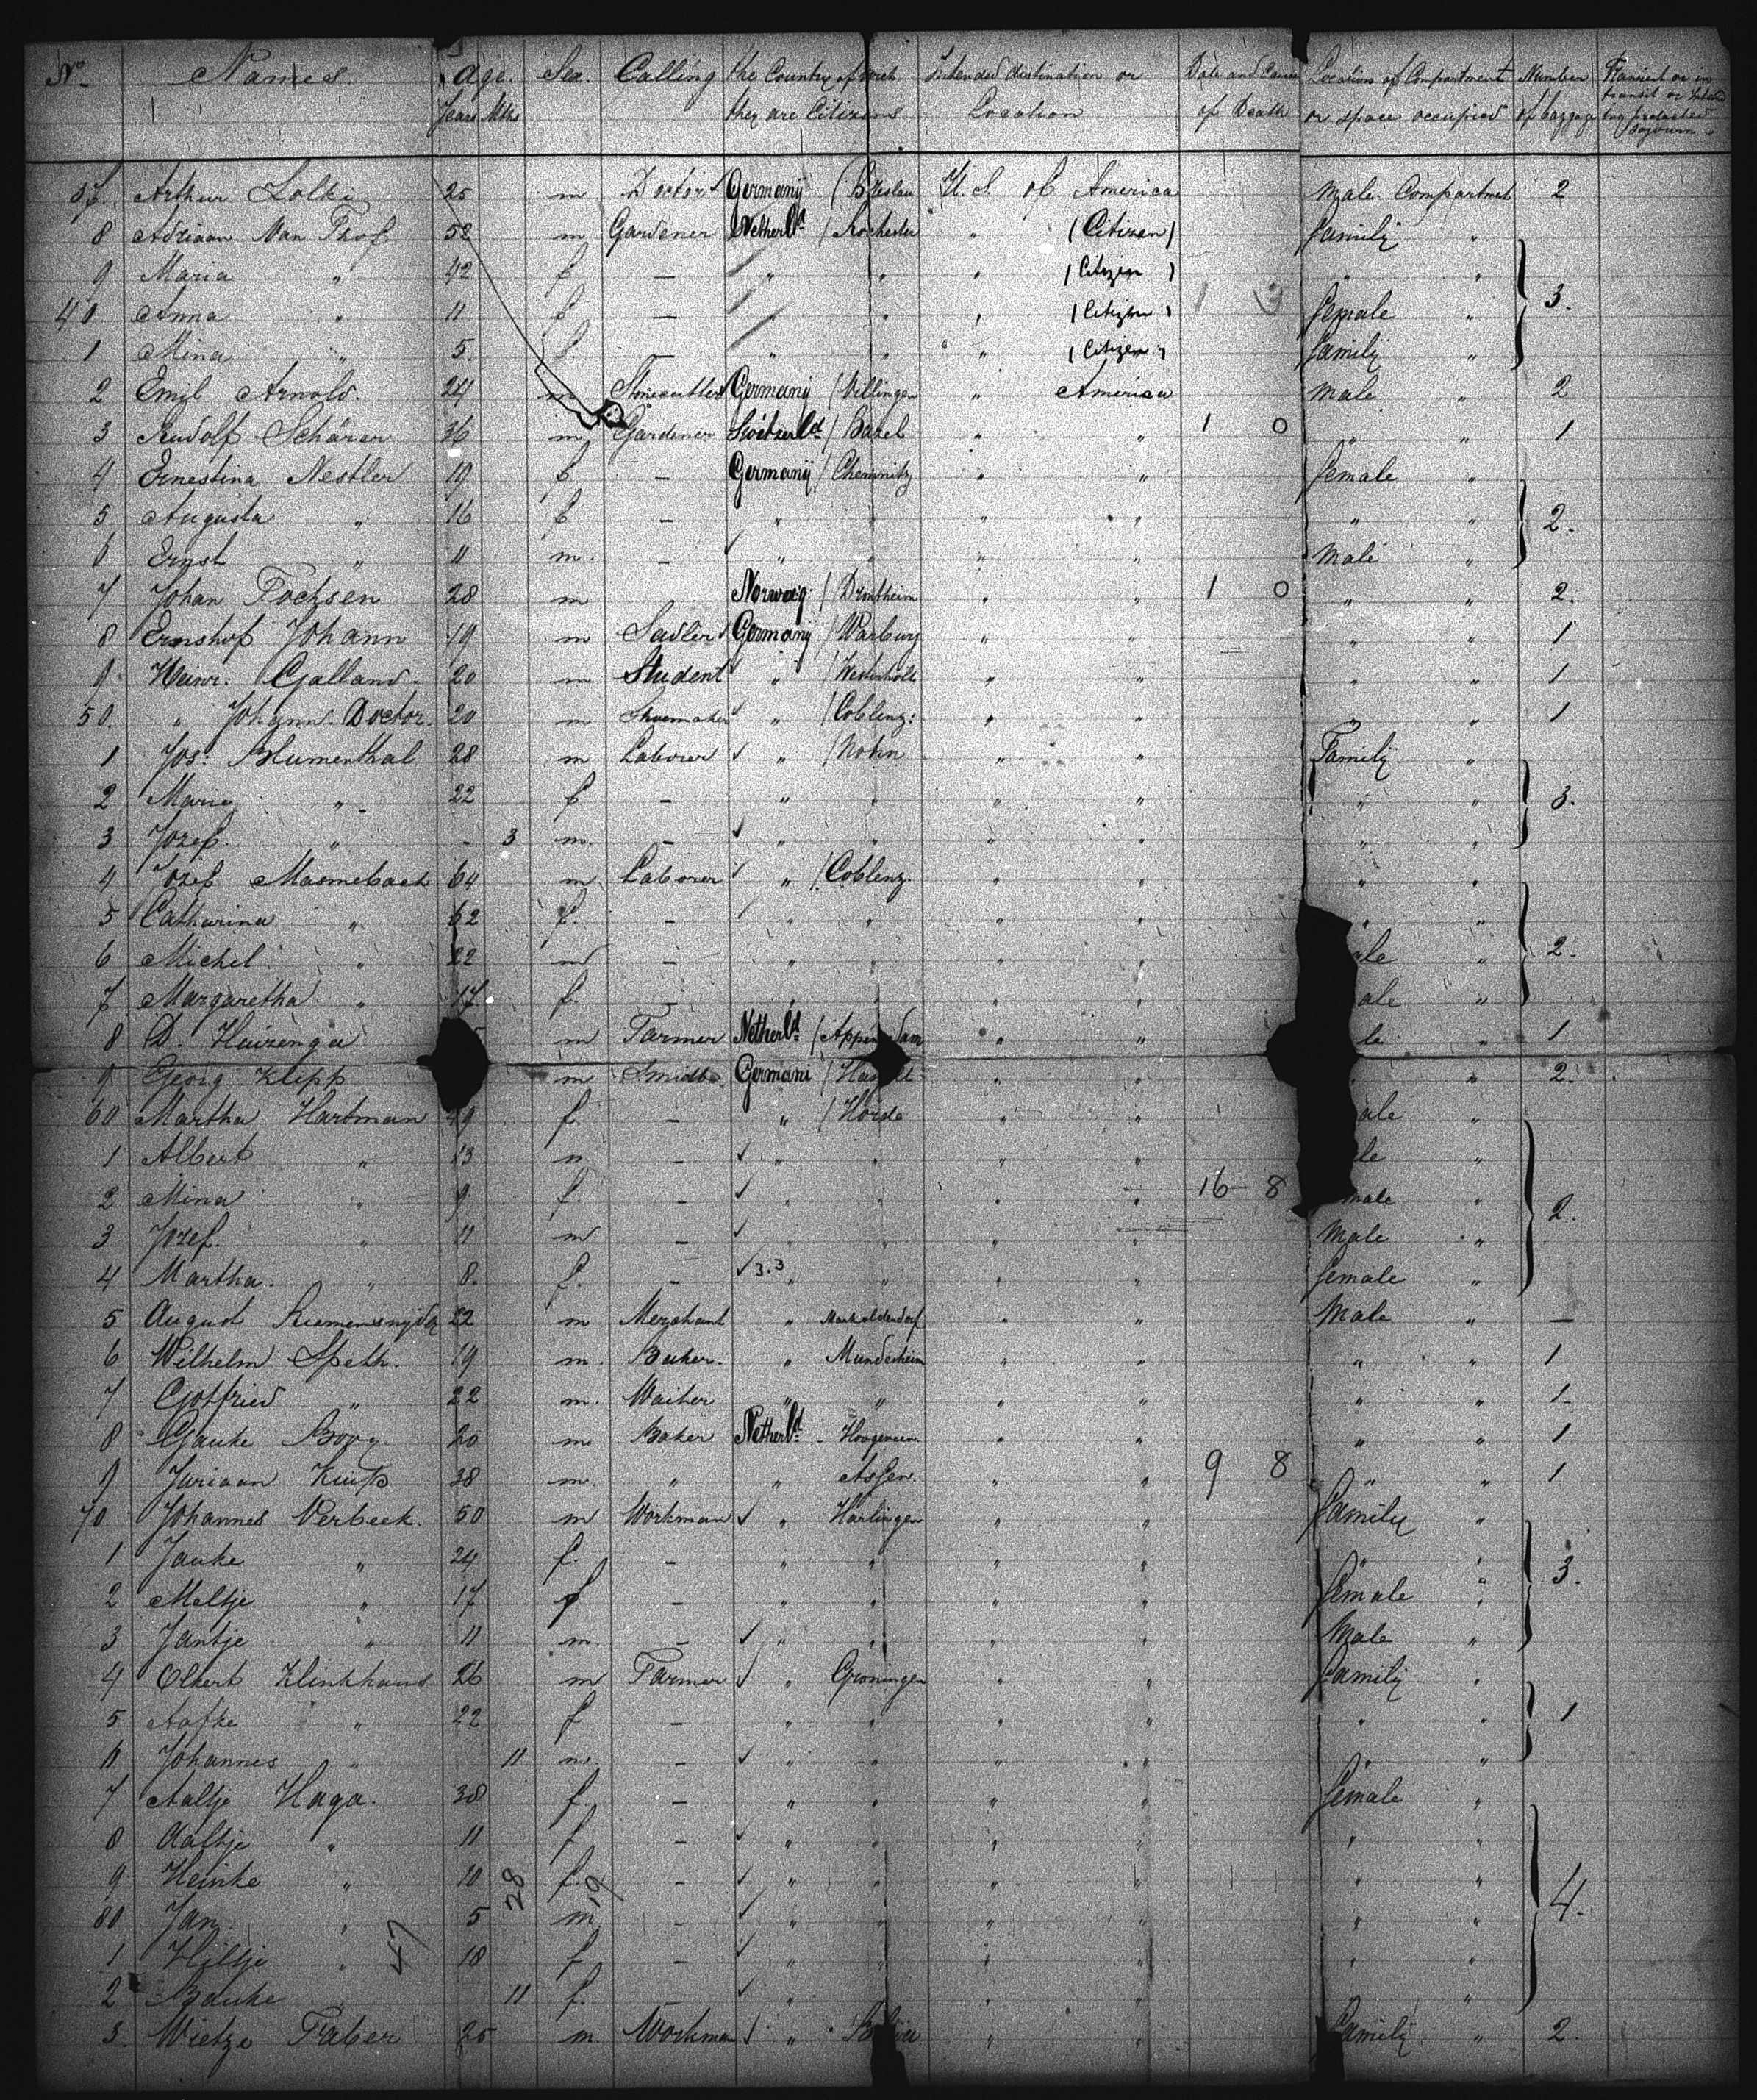 No Names Age. Sex. Calling the Country of which Intended distination or Date and Cause Location of Compartment Number Transient or in
Years Mths they are Citizens Location of Death or space occupied of baggage transit or
37 Arthur 25 m Doctor Germany (Breslau U. S. of America Male Compartmet 2
8 Adriaan Van Thof 52 m Gardener Netherld / Rochester " (Citizen) family "
9 Maria " 42 f — " " " (Citizen) " "
40 Anna " 11 f — " " " (Citizen) female " 3.
1 Mina " 5. f — " " " (Citizen) family "
2 Emil Arnold. 24 m Stonecutter Germany / Villingen " America male " 2
3 Rudolf Schärer 36 m Gardener Switzerld / Bazel " " 1 0 " " 1
4 Ernestina Nestler 19 f — Germany / Chemnitz " " female "
5 Augusta " 16 f — " " " " " " 2.
6 Ernst " 11 m. — " " " " male "
7 Johan Fochsen 28 m Norweg: / Drontheim " " 1 0 " " 2.
8 Ernshof Johann 19 m Sadler Germany / Warburg " " " " 1
9 Heinr: Galland. 20 m Student " / Westerholt " " " " 1
50. " Johann Doctor. 20 m Shoemaker " / Coblenz: " " " " 1
1 Jos: Blumenthal 28 m Laborer " / Nohn " " Family "
2 Marie " 22 f — " " " " " " 3.
3 Jozef. " - 3 m. — " " " " " "
4 Jozef 64 m Laborer " / Coblenz. " " " "
5 Catharina " 62 f. — " " " " " "
6 Michel " 22 m — " " " " ale " 2.
7 Margaretha " 17. f. — " " " " ale "
8 D. Huizenga m Farmer Netherld / " " le " 1
9 Georg Klipp m Smidt Germani / " " " 2.
60 Martha Hartman f. — " / Hörde " " ale "
1 Albert " 13 m — " " " " le "
2 Mina " 9 f. — " " " " 16 8 male "
3 Jozef. " 11 m — " " " " Male " 2.
4 Martha. " 8. f. — 3.3 " " " " female "
5 August Riemensnyder 22 m Merchant " Markoldendorf " " Male " —
6 Wilhelm Speth. 19 m. Baker. " Mundesheim " " " " 1
7 Gotfried " 22 m. Waiter " " " " " " 1
8 Gauke Booy 20 m Baker Netherld Hoogeveen " " " " 1
9 Juriaan Kuip 38 m. " " Assen. " " 9 8 " " 1
70 Johannes Verbeek. 50 m Workman " Harlingen " " family "
1 Jauke " 24 f. — " " " " " "
2 Meltje " 17 f — " " " " female " 3.
3 Jantje " 11 m. — " " " " Male "
4 Olkert Klinkhamer 26 m Farmer " Groningen " " family "
5 Aafke " 22 f — " " " " " " 1
6 Johannes " 11 m. — " " " " " "
7 Aaltje Haga. 38 f. — " " " " female "
8 Aaltje " 11 f — " " " " " "
9 Heinke " 10 28 f. 19 — " " " " " "
80 Jan " 5 m — " " " " " " 4.
1 Hiltje " 47 18 f — " " " " " "
2 Bauke " 11 f. — " " " " " "
3. Wietze Faber 25 m. Workman " " " family " 2.